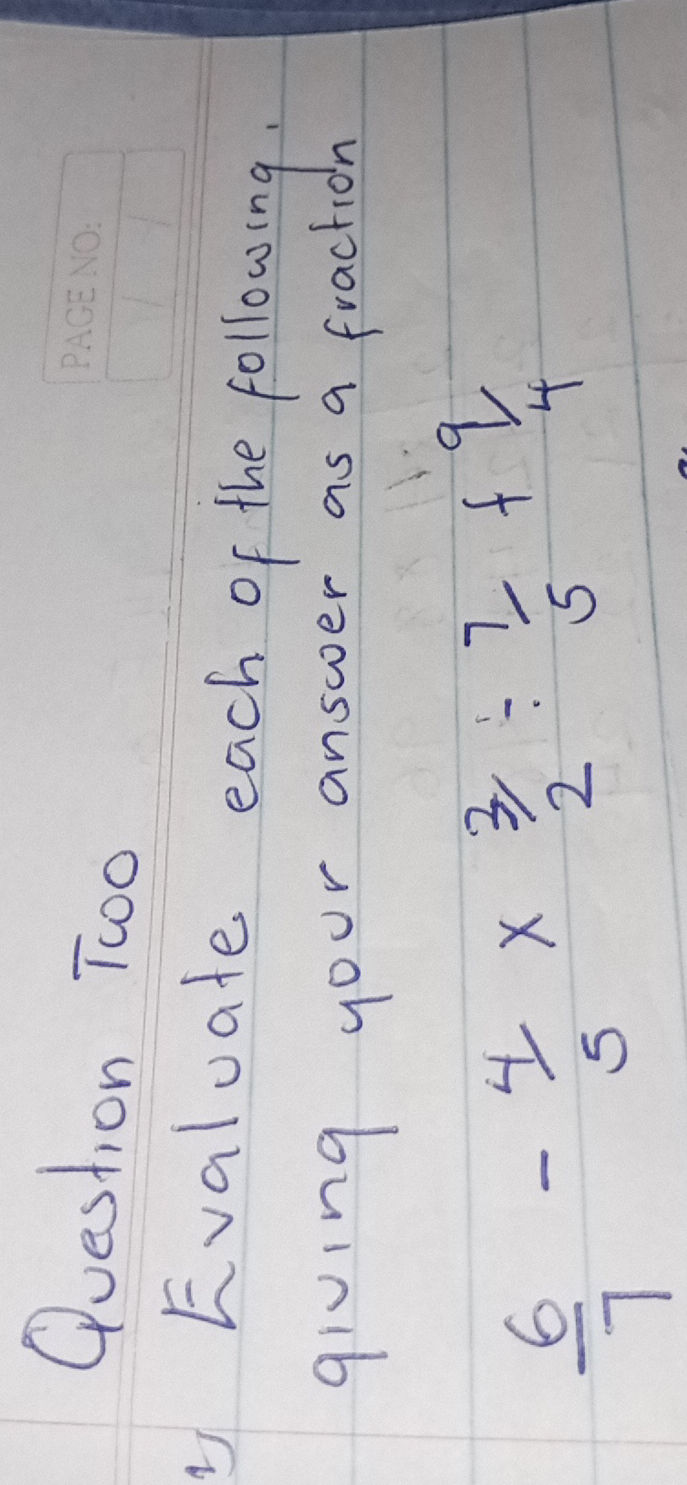 PAGE NO:
Question Two
1) Evaluate each of the following,
giving your answer as a fraction
6/7 - 4/5 × 3/2 ÷ 7/5 + 9/4